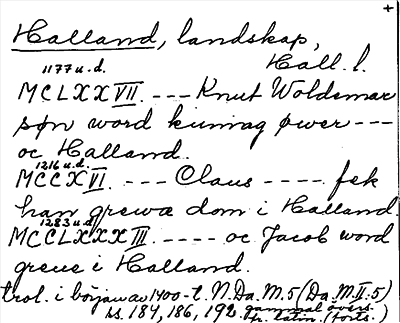 +
Halland, landskap,
Hall. l.
1177 u.d.
MCLXXVII. --- Knut Woldemar
søn word kunnag øwer ---
oc Halland.
1216 u.d.
MCCXVI --- Claus ---- fek
han grewæ dom i Halland.
1283 u.d.
MCCLXXXIII ---- oc Jacob word
greue i Halland.
trol. i början av 1400-t. N.Da.M.5 (Da.M.II.5)
ss. 184, 186, 192. gammal övers.
fr. latin. (forts.)